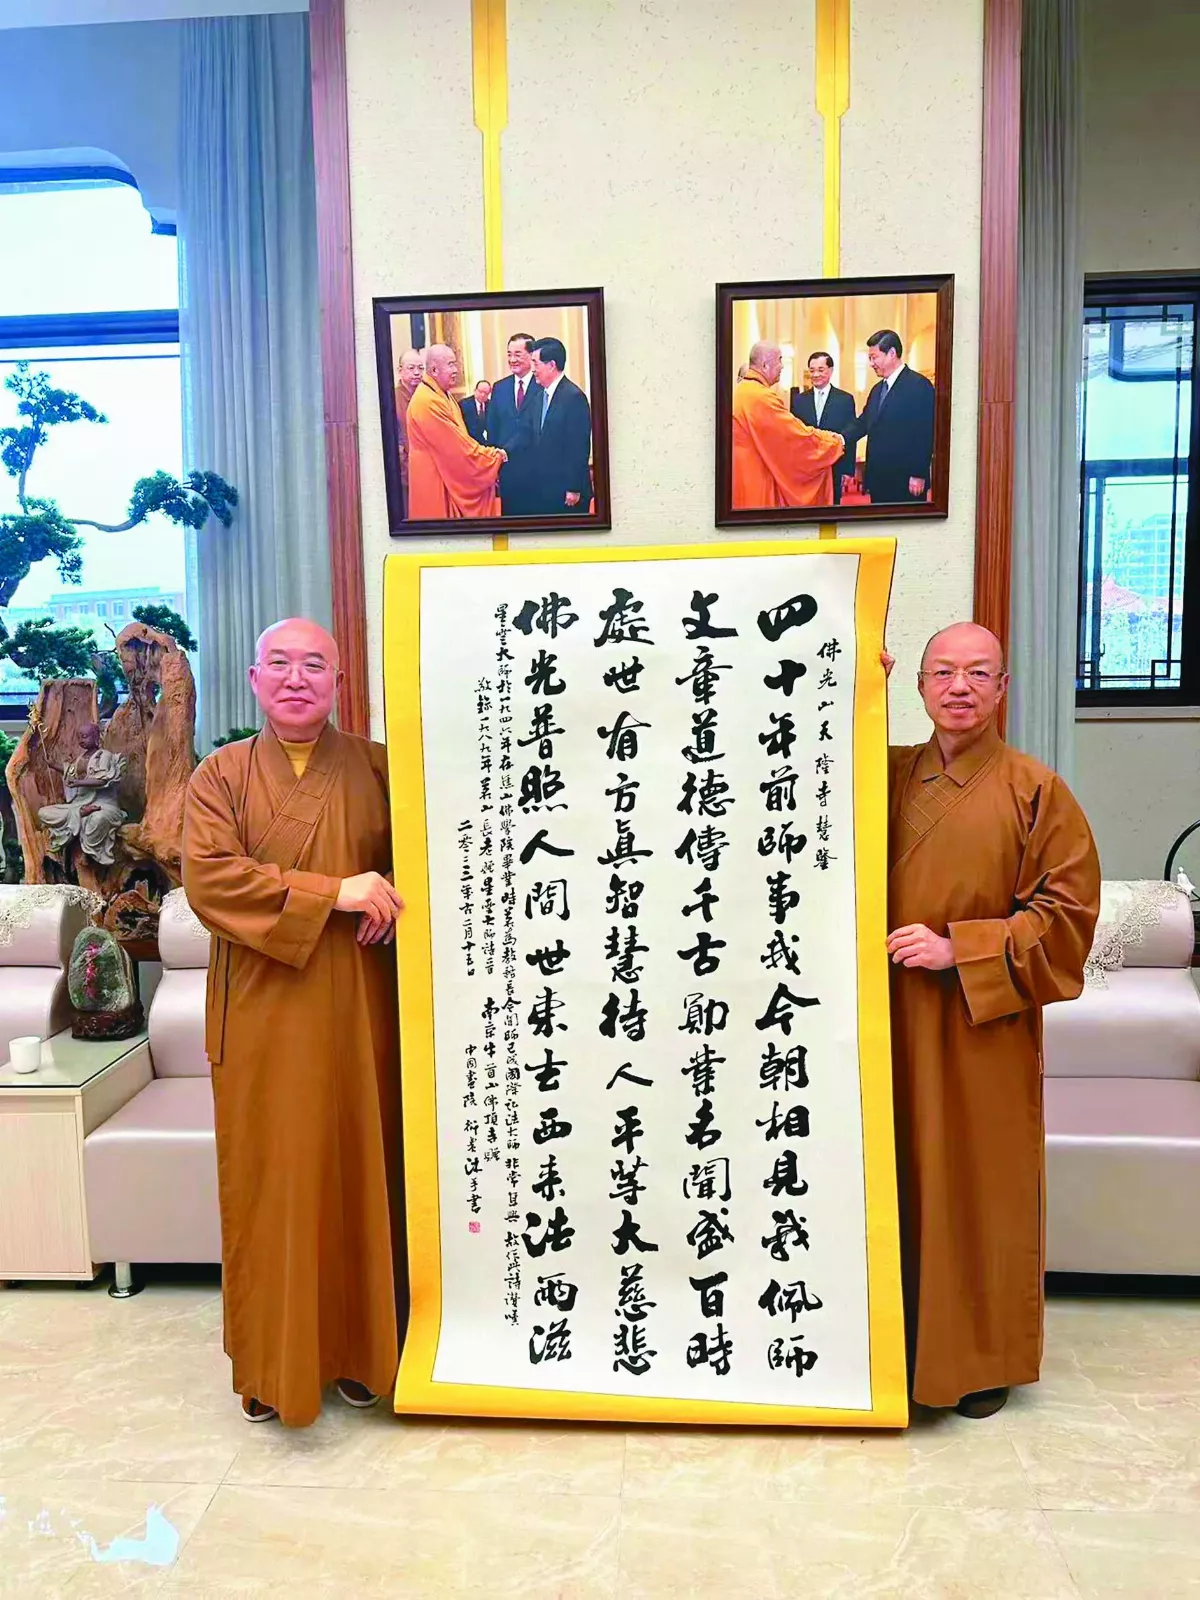 佛光山天隆寺慧鑒
四十年前師事我今朝相見我佩師
文章道德傳千古勛業名聞盛百時
處世有方真智慧待人平等大慈悲
佛光普照人間世東去西來法雨滋
星雲大師於一九四六年在焦山佛學院畢業時茗為教務長今聞師已成國際弘法大師非常自興故作此詩讚嘆
敬錄一九八九年茗山長老贈星雲大師詩一首 南京牛首山佛頂寺贈
二零二三年古二月十五日
中國書院